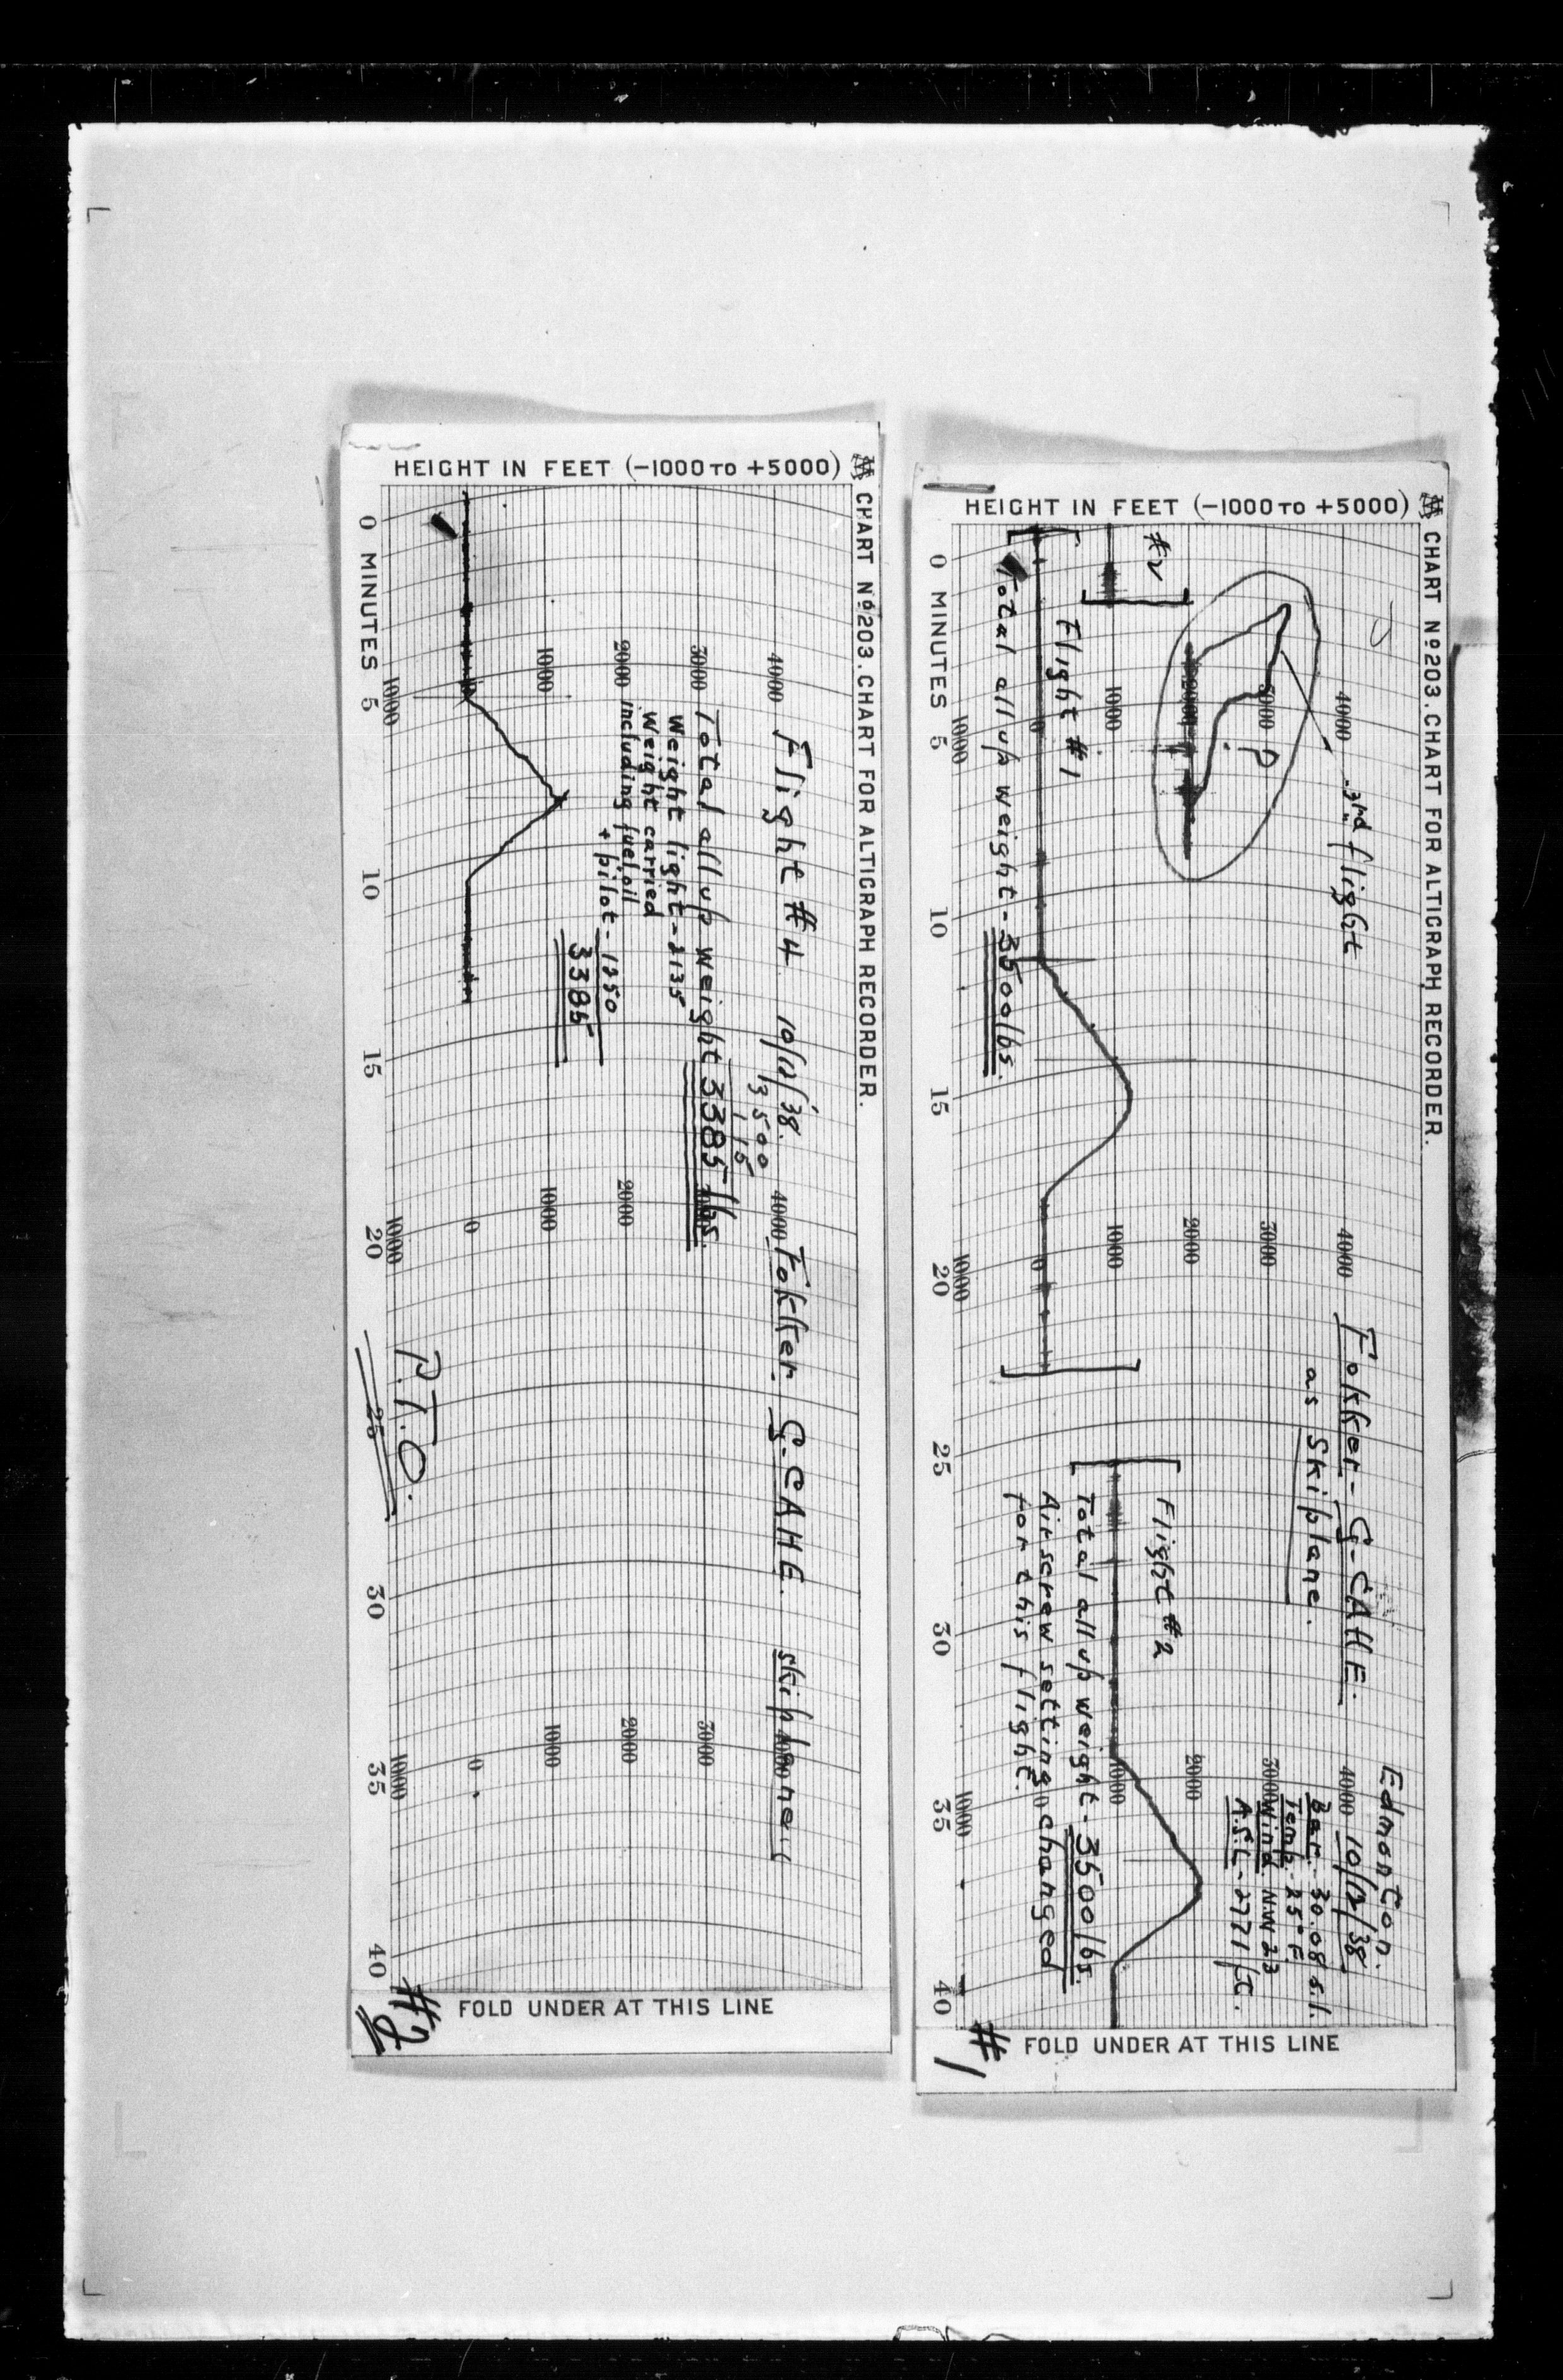 CHART Nº 203. CHART FOR ALTIGRAPH RECORDER.
HEIGHT IN FEET (−1000 TO +5000)
Edmonton.
10/12/38
Bar. - 30.08 s.l.
Temp - 25° F
Wind N.W 23
A.S.L - 2771 ft.
Fokker - G-CAHE.
as Skiplane.
3rd flight
?
#2
Flight #1
Total all up weight - 3500 lbs.
Flight #2
Total all up weight - 3500 lbs
Airscrew setting changed
for this flight.
4000 4000 4000
3000 3000 3000
2000 2000 2000
1000 1000 1000
0 0 0
1000 1000 1000
0 MINUTES 5 10 15 20 25 30 35 40
FOLD UNDER AT THIS LINE
#1
CHART Nº 203. CHART FOR ALTIGRAPH RECORDER.
HEIGHT IN FEET (−1000 TO +5000)
Flight #4 10/12/38. Fokker G-CAHE. skiplane
3500
115
Total all up weight 3385 lbs.
Weight light - 2135
Weight carried
including fuel, oil
+ pilot - 1250
3385
4000 4000 4000
3000 3000 3000
2000 2000 2000
1000 1000 1000
0 0
1000 1000 1000
P.T.O.
0 MINUTES 5 10 15 20 25 30 35 40
FOLD UNDER AT THIS LINE
#2